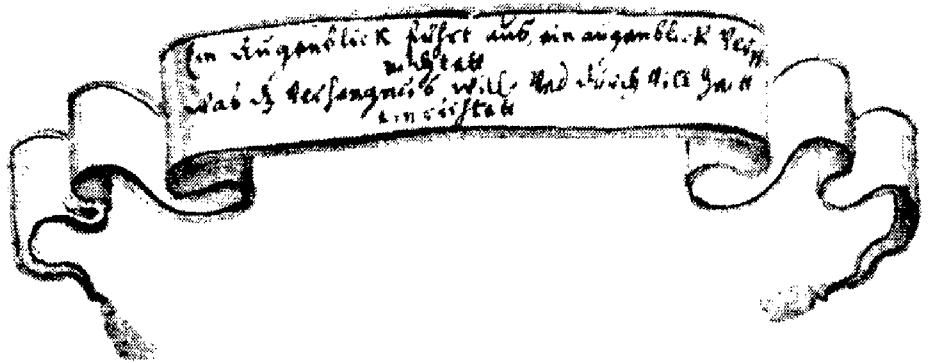 Ein Augenblick führt aus, ein augenblick ver
nichtett
was dz verhengnüs will Vnd durch Vill Zeitt
einrichtett